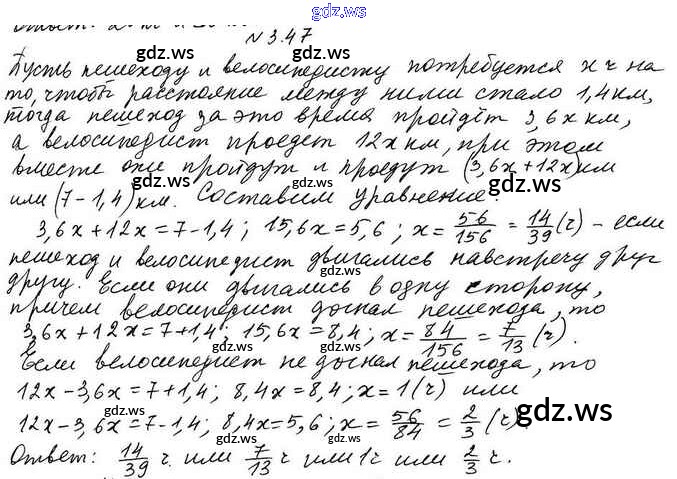 gdz.ws
N 3.47
gdz.ws gdz.ws
Пусть пешеходу и велосипедисту потребуется x ч на
то, чтобы расстояние между ними стало 1,4 км,
тогда пешеход за это время пройдёт 3,6x км,
gdz.ws gdz.ws
а велосипедист проедет 12x км, при этом
вместе они пройдут и проедут (3,6x+12x) км
gdz.ws gdz.ws
или (7-1,4) км. Составим уравнение:
3,6x+12x=7-1,4; 15,6x=5,6; x=56/156=14/39 (ч) - если
gdz.ws gdz.ws
пешеход и велосипедист двигались навстречу друг
другу. Если они двигались в одну сторону,
причем велосипедист догнал пешехода, то
gdz.ws gdz.ws
3,6x+12x=7+1,4; 15,6x=8,4; x=84/156=7/13 (ч).
Если велосипедист не догнал пешехода, то
gdz.ws
12x-3,6x=7+1,4; 8,4x=8,4; x=1(ч) или
gdz.ws gdz.ws
12x-3,6x=7-1,4; 8,4x=5,6; x=56/84=2/3 (ч).
Ответ: 14/39 ч. или 7/13 ч или 1ч или 2/3 ч.
gdz.ws gdz.ws